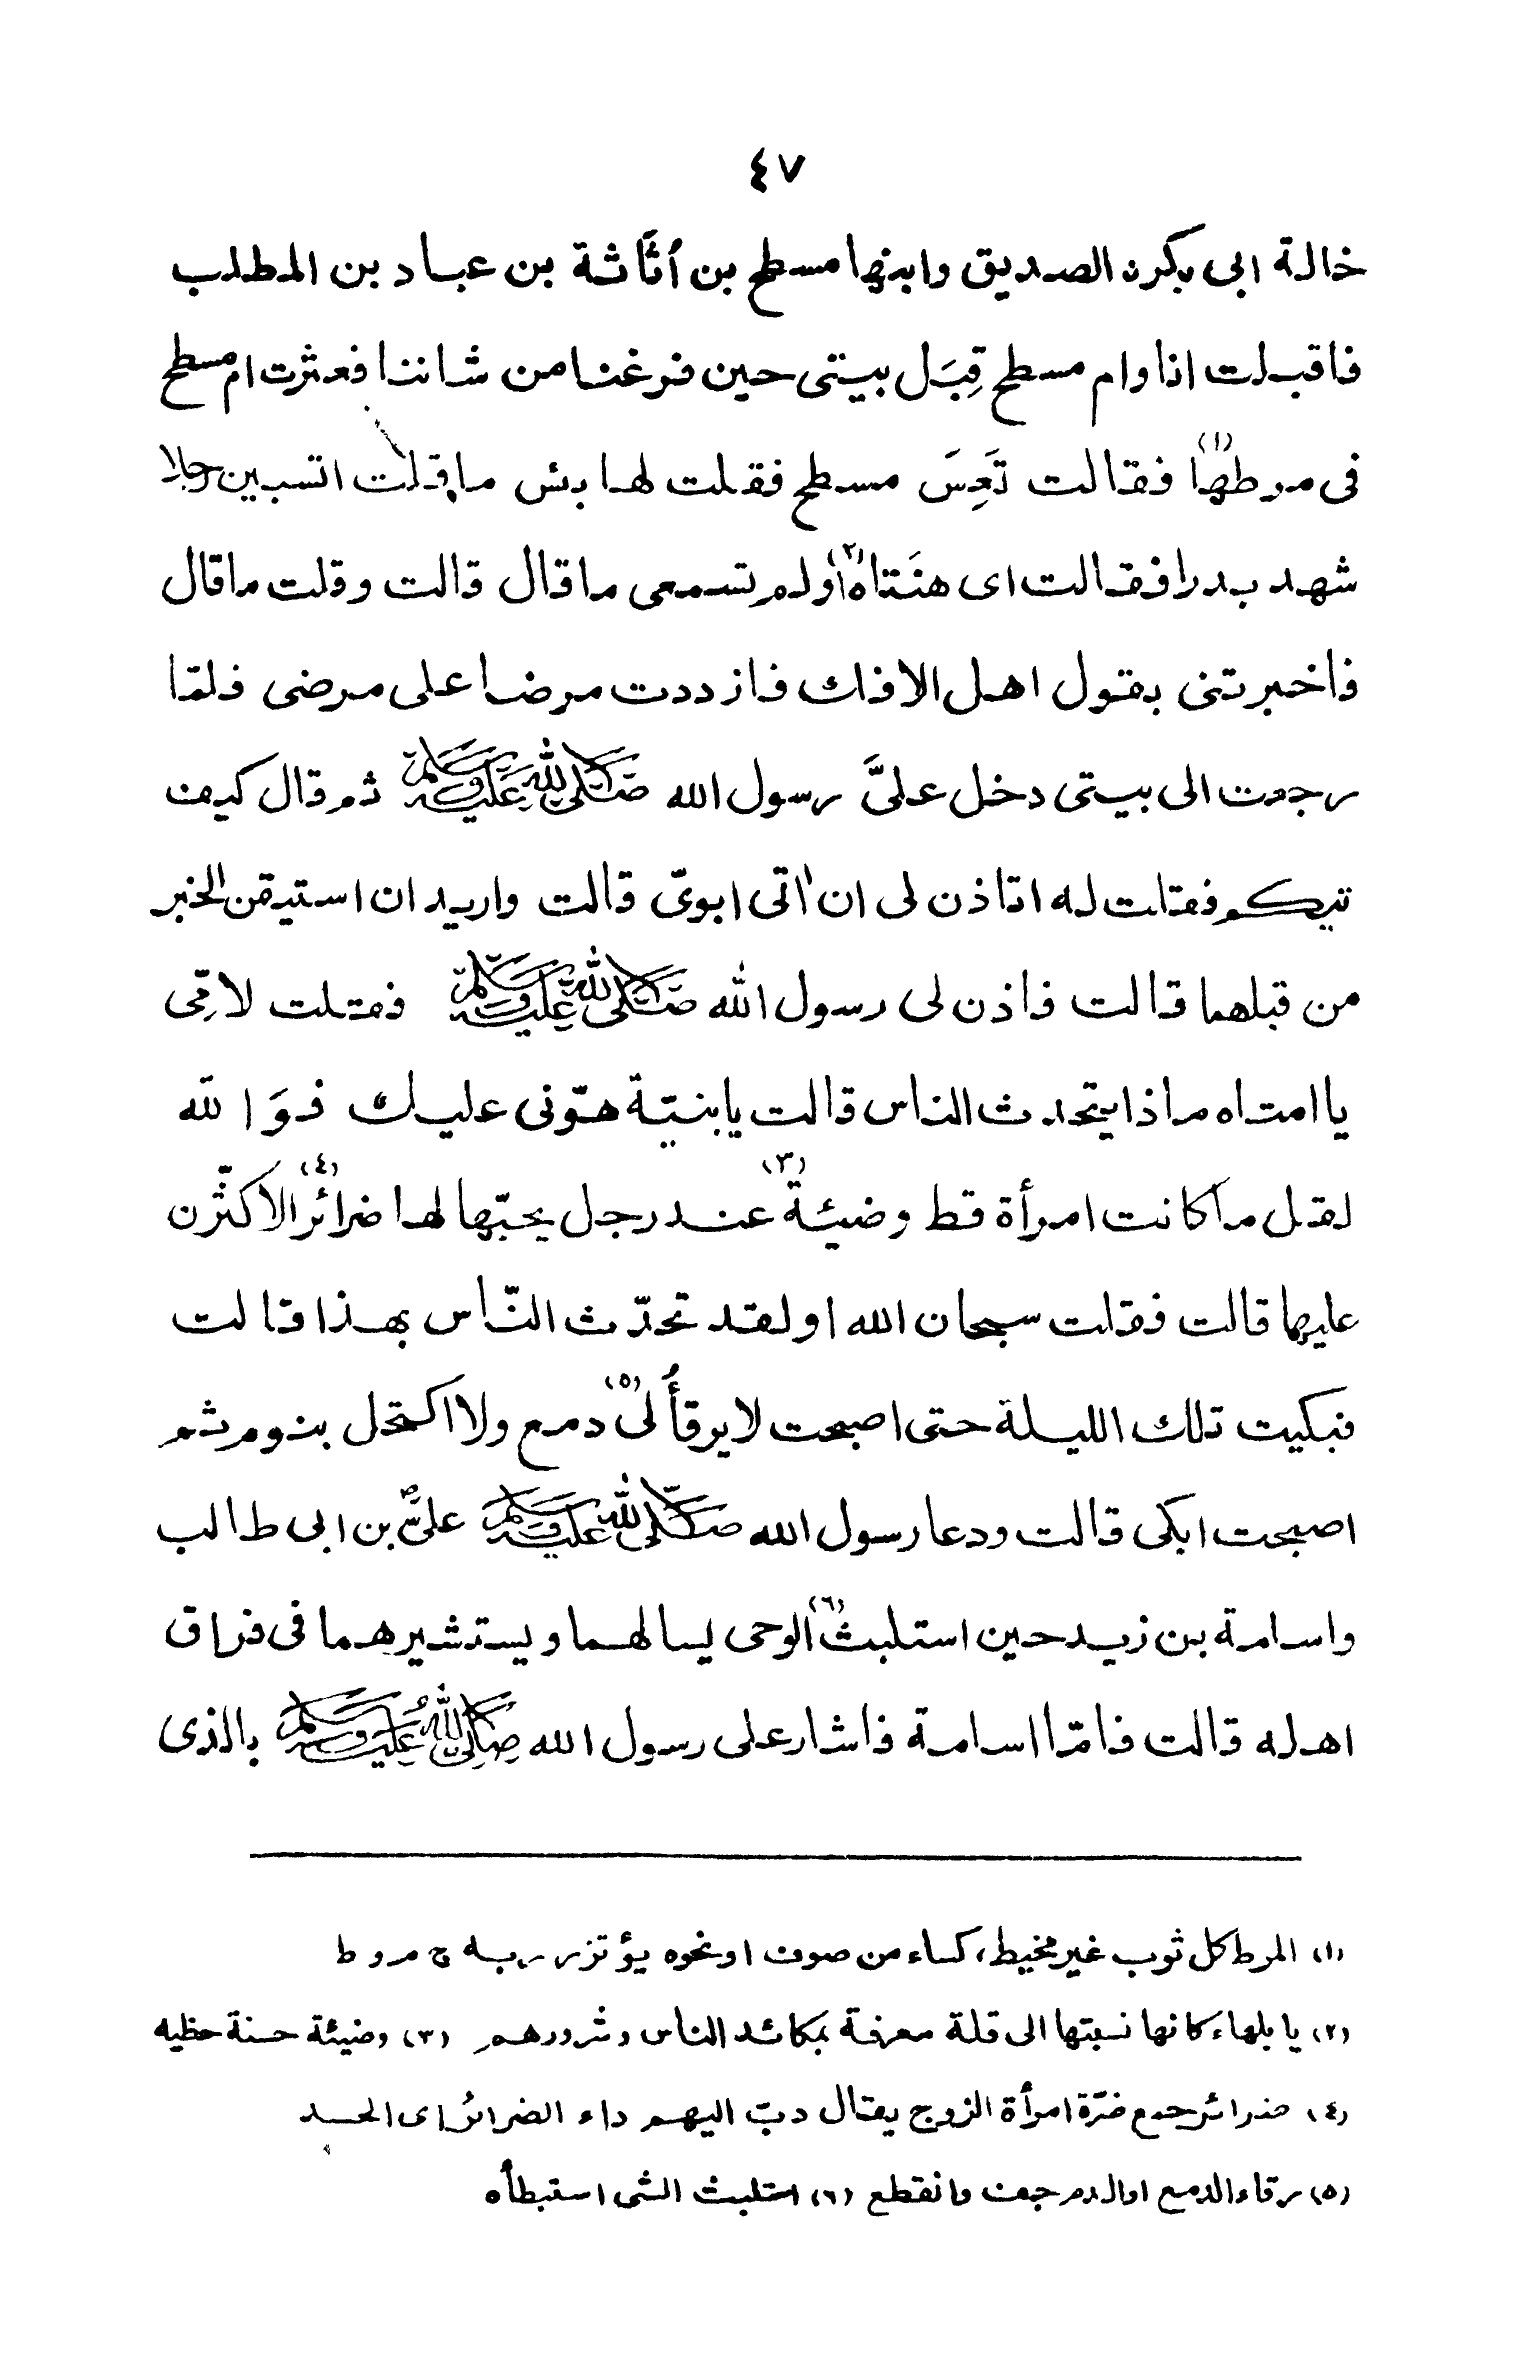 ٤٧
خالة ابى بكرن الصديق وابنها مسطح بن اُثَاثة بن عباد بن المطلب
فاقبلت انا وام مسطح قِبَل بيتى حين فرغنا من شاننا فعثرت ام مسطح
فى مرطها (١) فقالت تَعِسَ مسطح فقلت لها بئس ما قلت اتسبين رجلا
شهد بدرا فقالت اى هنَتاه (٢) اولم تسمعى ما قال قالت وقلت ما قال
فاخبرتنى بقول اهل الافك فازددت مرضا على مرضى فلمّا
رجعت الى بيتى دخل علىَّ رسول الله صَلَّى اللهُ عَلَيْهِ وَسَلَّمَ ثم قال كيف
تيكم فقلت له اتاذن لى ان اٰتى ابوىّ قالت واريد ان استيقن الخبر
من قبلهما قالت فاذن لى رسول الله صَلَّى اللهُ عَلَيْهِ وَسَلَّمَ فقلت لامِّى
يا امتاه ماذا يتحدث الناس قالت يا بنيّة هوّنى عليك فوَ الله
لقل ما كانت امرأة قط وضيئة (٣) عند رجل يحبّها لها ضرائر (٤) الا كثّرن
عليها قالت فقلت سبحان الله اولقد تحدّث النّاس بهذا قالت
فبكيت تلك الليلة حتى اصبحت لا يرقأُ لى (٥) دمع ولا اكتحل بنوم ثم
اصبحت ابكى قالت ودعا رسول الله صَلَّى اللهُ عَلَيْهِ وَسَلَّمَ علىَّ بن ابى طالب
واسامة بن زيد حين استلبث (٦) الوحى يسالهما ويستشيرهما فى فراق
اهله قالت فامّا اسامة فاشار على رسول الله صَلَّى اللهُ عَلَيْهِ وَسَلَّمَ بالذى
(١) المرط كل ثوب غير مخيط، كساء من صوف او نحوه يؤتزر به ج مروط
(٢) يا بلهاء كانها نسبتها الى قلة معرفة بمكائد الناس وشرورهم (٣) وضيئة حسنة حظيه
(٤) ضرائر جمع ضرّة امرأة الزوج يقال دبّ اليهم داء الضرائر اى الحسد
(٥) رقاء الدمع او الدم جف وانقطع (٦) استلبث الشى استبطأه